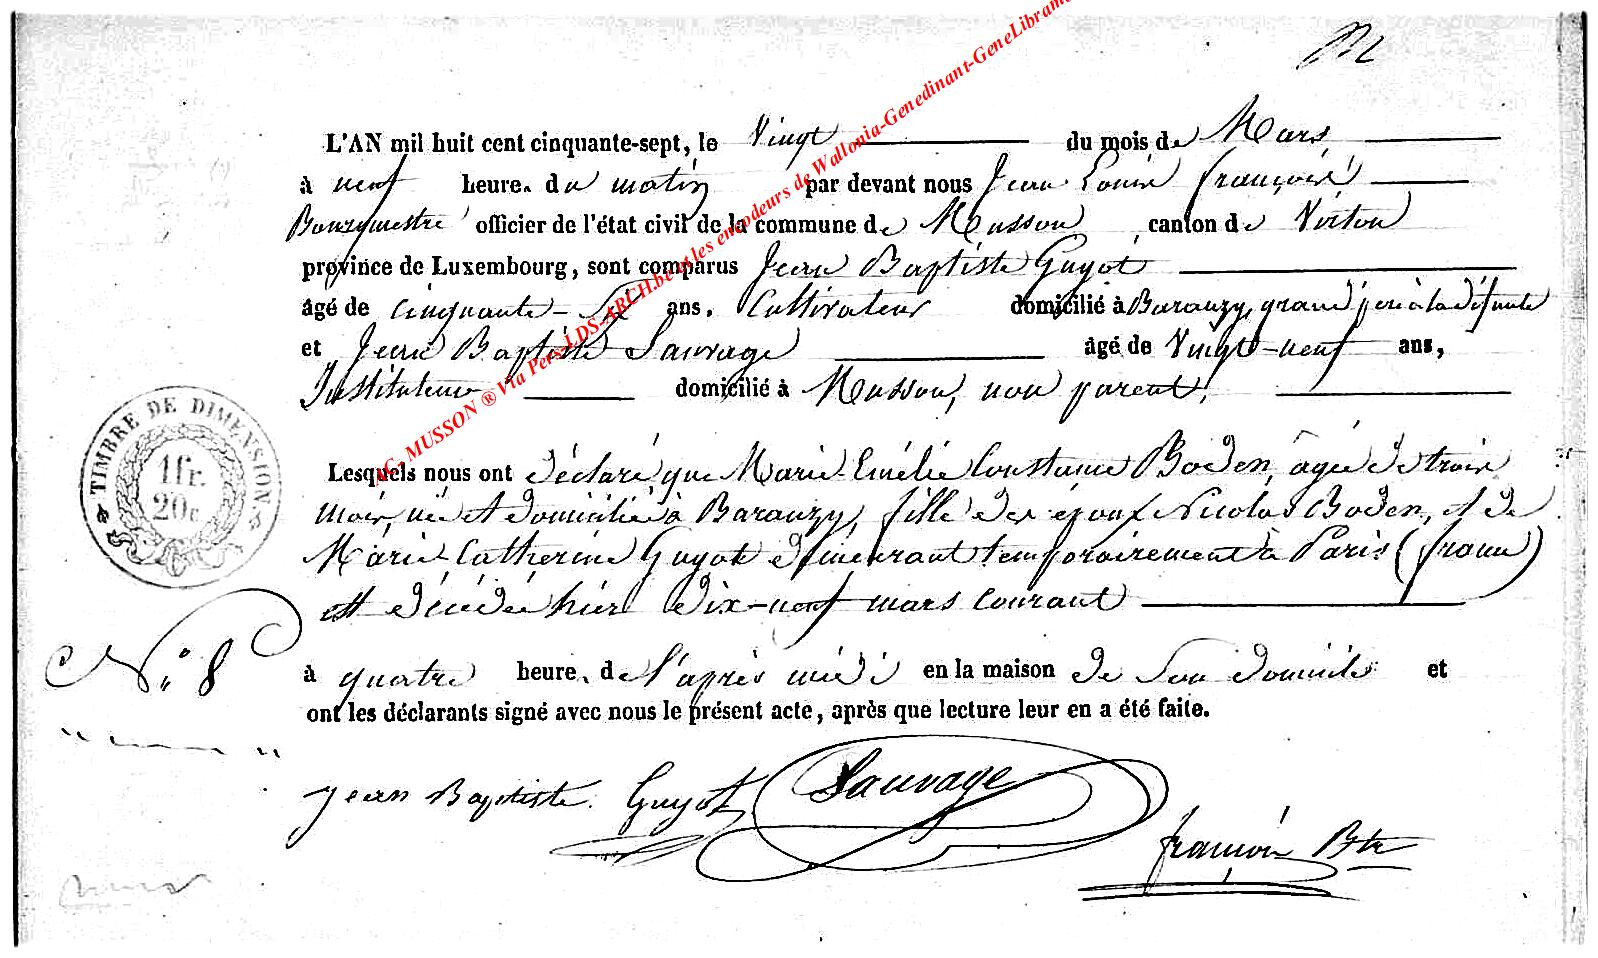 L'AN mil huit cent cinquante-sept, le Vingt du mois de Mars
à neuf heure. du matin par devant nous Jean Louis françois
Bourgmestre officier de l'état civil de la commune de Musson canton de Virton
province de Luxembourg, sont comparus Jean Baptiste Guyot
âgé de cinquante-six ans. Cultivateur domicilié à Baranzy, grand père à la défunte
et Jean Baptiste Sauvage âgé de Vingt-neuf ans,
Instituteur domicilié à Musson, non parent,
Lesquels nous ont déclaré que Marie Emélie Constance Boden, âgée de trois
mois, née et domiciliée à Baranzy, fille des époux Nicolas Boden, et de
Marie Catherine Guyot demeurant temporairement à Paris (france)
est décédée hier dix-neuf mars courant
à quatre heure. de l'après midi en la maison de son domicile et
ont les déclarants signé avec nous le présent acte, après que lecture leur en a été faite.
Jean Baptiste. Guyot Sauvage
françois Btre
TIMBRE DE DIMENSION.
1 fr.
20 c
N° 8
MUSSON ® Via Pers LDS-ARCH.be et les encodeurs de Wallonia-Genedinant-GeneLibram